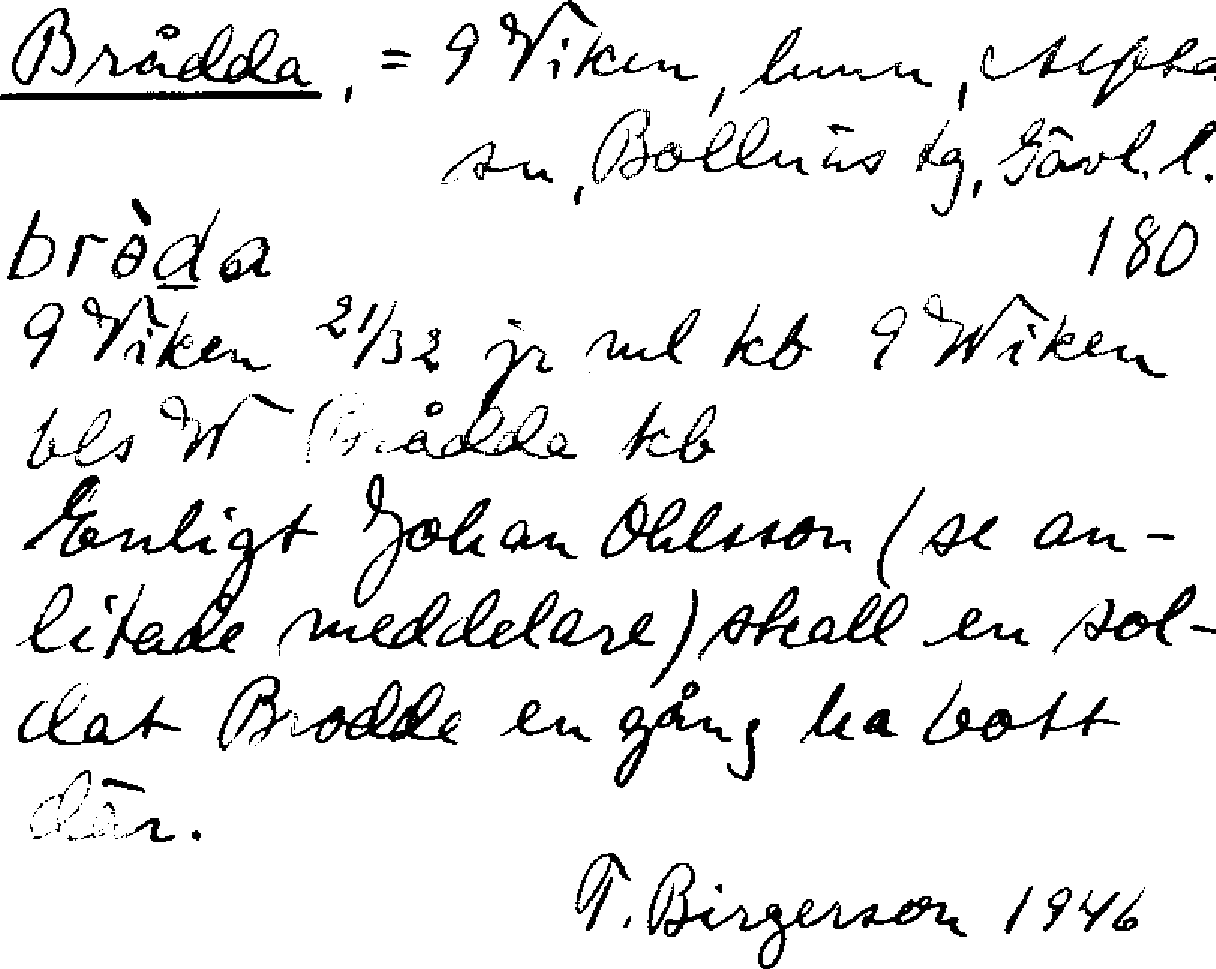 Brådda, = 9 Viken, hmn, Alfta
sn, Bollnäs tg, Gävl. l.
bròda 180
9 Viken 21/32 jr ml kb 9 Wiken
bls W Brådda kb
Enligt Johan Ohlsson (se an-
litade meddelare) skall en sol-
dat Brodde en gång ha bott
där.
T. Birgerson 1946